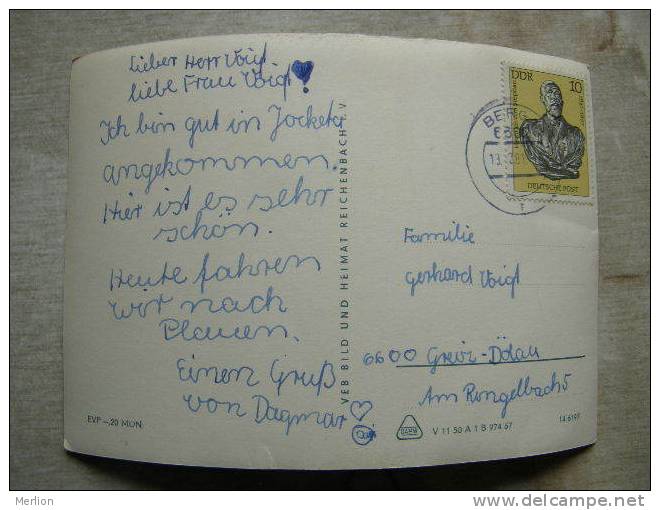 Lieber Herr Voigt
liebe Frau Voigt!
Ich bin gut in Jocketa
angekommen.
Hier ist es sehr
schön.
Heute fahren
wir nach
Plauen.
Einen Gruß
von Dagmar
EVP –,20 MDN
VEB BILD UND HEIMAT REICHENBACH I. V.
DDR 10
DEUTSCHE POST
BERG
Familie
Gerhard Voigt
6600 Greiz-Dölau
Am Rungelbach 5
V 11 50 A 1 B 974 67
Merlion
www.delcampe.net